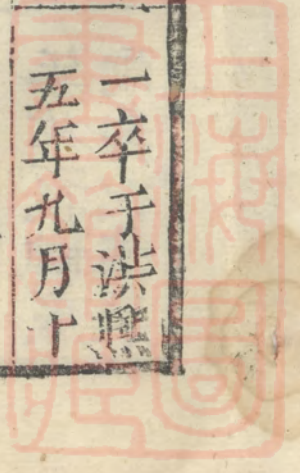 一卒于洪熙
五年九月十